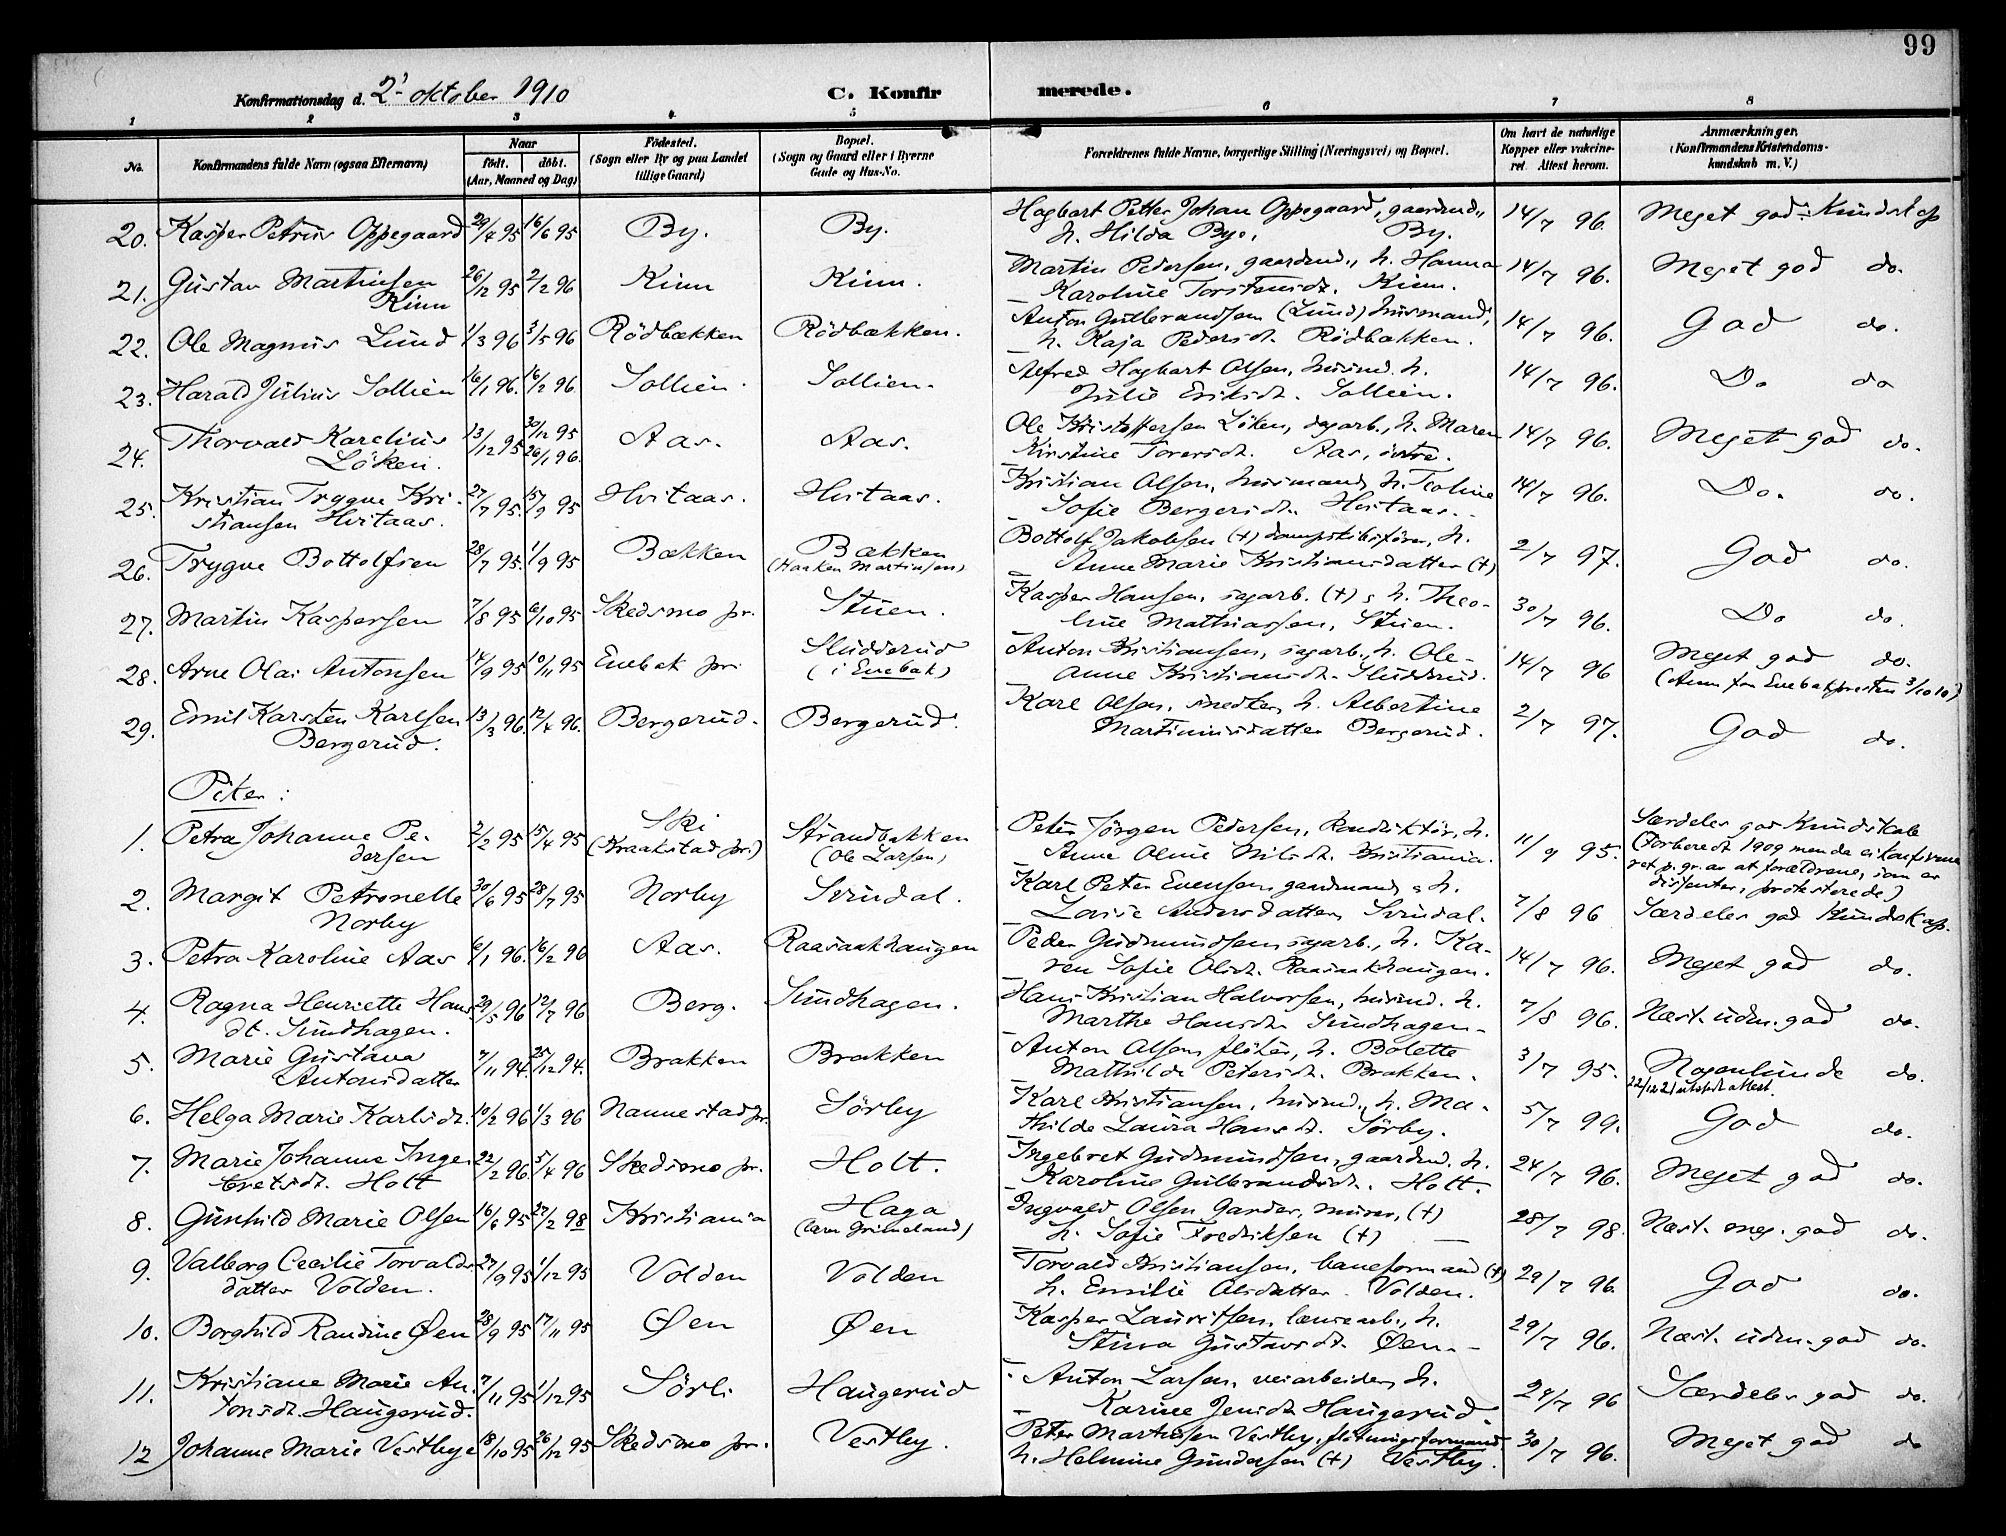 99
Konfirmationsdag d. 2' oktober 1910 C. Konfirmerede.
1 2 3 4 5 6 7 8
No. Konfirmandens fulde Navn (ogsaa Efternavn) Naar født. døbt. (Aar, Maaned og Dag) Fødested. (Sogn eller By og paa Landet tillige Gaard) Bopæl. (Sogn og Gaard eller i Byerne Gade og Hus-No. Forældrenes fulde Navne, borgerlige Stilling (Næringsvei) og Bopæl. Om havt de naturlige Kopper eller vakcineret. Attest herom. Anmærkninger, (Konfirmandens Kristendomskundskab m. V.)
20. Kasper Petrus Oppegaard 29/4 95 16/6 95 By. By. Hagbart Petter Johan Oppegaard, gaardmd., 14/7 96. Meget god Kundskap
h. Hilda Bye, By.
21. Gustav Martinsen 26/12 95 2/2 96 Kinn Kinn. Martin Pedersen, gaardmd., h. Hanna 14/7 96. Meget god do.
Kinn Karoline Torstensdt. Kinn.
22. Ole Magnus Lund 1/3 96 3/5 96 Rödbækken Rödbækken. Anton Gulbrandsen (Lund) husmand, 14/7 96. God do.
h. Kaja Pedersdt. Rödbækken.
23. Harald Julius Sollien 16/1 96. 16/2 96. Sollien. Sollien. Alfred Hagbart Olsen, husmd. h. 14/7 96. Do do
Julie Eriksdt. Sollien.
24. Thorvald Karelius 13/12 95 30/12 95 Aas. Aas. Ole Kristoffersen Löken, dagarb., h. Maren 14/7 96. Meget god do.
Löken. 26/1 96. Kirstine Toresdt. Aas, östre.
25. Kristian Trygve Kri- 27/7 95. 15/9 95 Hvitaas. Hvitaas. Kristian Olsen, husmand, h. Teoline 14/7 96. Do. do.
stiansen Hvitaas. Sofie Bergersdt. Hvitaas.
26. Trygve Bottolfsen 28/7 95. 1/9 95 Bækken Bækken Bottolf Jakobsen (†) dampskibsförer, h. 2/7 97. God do.
(Haaken Martinsen) Anne Marie Kristiansdatter (†)
27. Martin Kaspersen 7/8 95 6/10 95 Skedsmo pr. Stuen. Kasper Hansen, sagarb. (†) & h. Theo- 30/7 96. Do do.
line Mathiassen, Stuen.
28. Arne Olai Antonsen 14/9 95 10/11 95 Enebak pr. Sludderud Anton Kristiansen, sagarb., h. Ole- 14/7 96 Meget god do.
(i Enebak) Anne Kristiansdt. Sludderud. (Anm. for Enebakpresten 3/10 10)
29. Emil Karsten Karlsen 13/3 96. 12/4 96. Bergerud. Bergerud. Karl Olsen, snedker, h. Albertine 2/7 97. God do.
Bergerud. Martiniusdatter Bergerud.
Piker:
1. Petra Johanne Pe- 2/2 95 15/4 95 Ski Strandbakken Peter Jörgen Pedersen, Konduktör, h. 11/9 95. Særdeles god Kundskab
dersen (Kraakstad pr.) (Ole Larsen) Anne Oline Nilsdt. Kristiania. (Forberedt 1909 men da ei konfirme-
ret p. gr. av at forældrene, som er
dissenter, protesterede)
2. Margit Petronelle 30/6 95 28/7 95 Norby Svindal. Karl Peter Evensen gaardmand & h. 7/8 96 Særdeles god Kundskap.
Norby Lovise Andersdatter, Svindal.
3. Petra Karoline Aas 6/1 96. 16/2 96 Aas. Raasaakhaugen Peder Gudmundsen sagarb., h. Ka- 14/7 96. Meget god do.
ren Sofie Olsdt. Raasaakhaugen.
4. Ragna Henriette Hans 29/5 96 12/7 96 Berg. Sundhagen. Hans Kristian Halvorsen, husmd. h. 7/8 96. Næst. udm. god do.
dt. Sundhagen. Marthe Hansdt. Sundhagen.
5. Marie Gustava 7/11 94. 25/12 94. Brakken Brakken Anton Olsen flöter, h. Bolette 3/7 95. Nogenlunde do.
Antonsdatter Mathilde Petersdt. Brakken. 22/12 21 utstedt attest.
6. Helga Marie Karlsdt. 10/2 96 1/3 96 Nannestad pr. Sörby Karl Kristiansen, husmd., h. Ma- 5/7 99. God do.
thilde Laura Hansdt. Sörby.
7. Marie Johanne Inge- 22/2 96. 5/4 96 Skedsmo pr. Holt. Ingebret Gudmundsen, gaardmd. h. 24/7 96. Meget god do.
bretsdt. Holt Karoline Gulbrandsdt. Holt.
8. Gunhild Marie Olsen 16/6 95 27/2 98 Kristiania Haga Ingvald Olsen Garder, murer, (†) 28/7 98. Næst. meg. god do.
(Grimeland) h. Sofie Fredriksen (†) —
9. Valborg Cecilie Torvalds- 27/9 95 1/12 95 Volden Volden Torvald Kristiansen, baneformand (†) 29/7 96. God do.
datter Volden. h. Emilie Olsdatter Volden.
10. Borghild Randine Øen 28/9 95 17/11 95 Øen Øen Kasper Lauritsen, h. 29/7 96. Næst. udm. god do.
Stina Gustavsdt. Øen.
11. Kristiane Marie An- 7/11 95 1/12 95 Sörli Haugerud Anton Larsen, veiarbeider, h. 29/7 96 Særdeles god do.
tonsdt. Haugerud. Karine Jensdt. Haugerud.
12 Johanne Marie Vestbye 18/10 95 26/12 95 Skedsmo pr. Vestby. Peter Martinsen Vestby, flötningsformand, 30/7 96. Meget god do
h. Helmine Gundersen (†) Vestby.